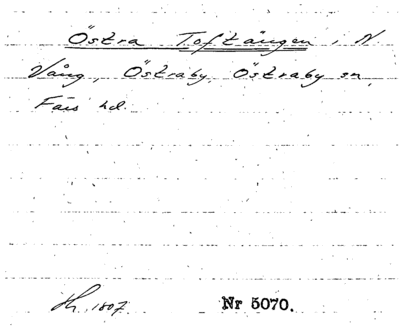 Östra Toftängen i N
Vång, Östraby, Östraby sn,
Färs hd.
Sk. 1807. Nr 5070.